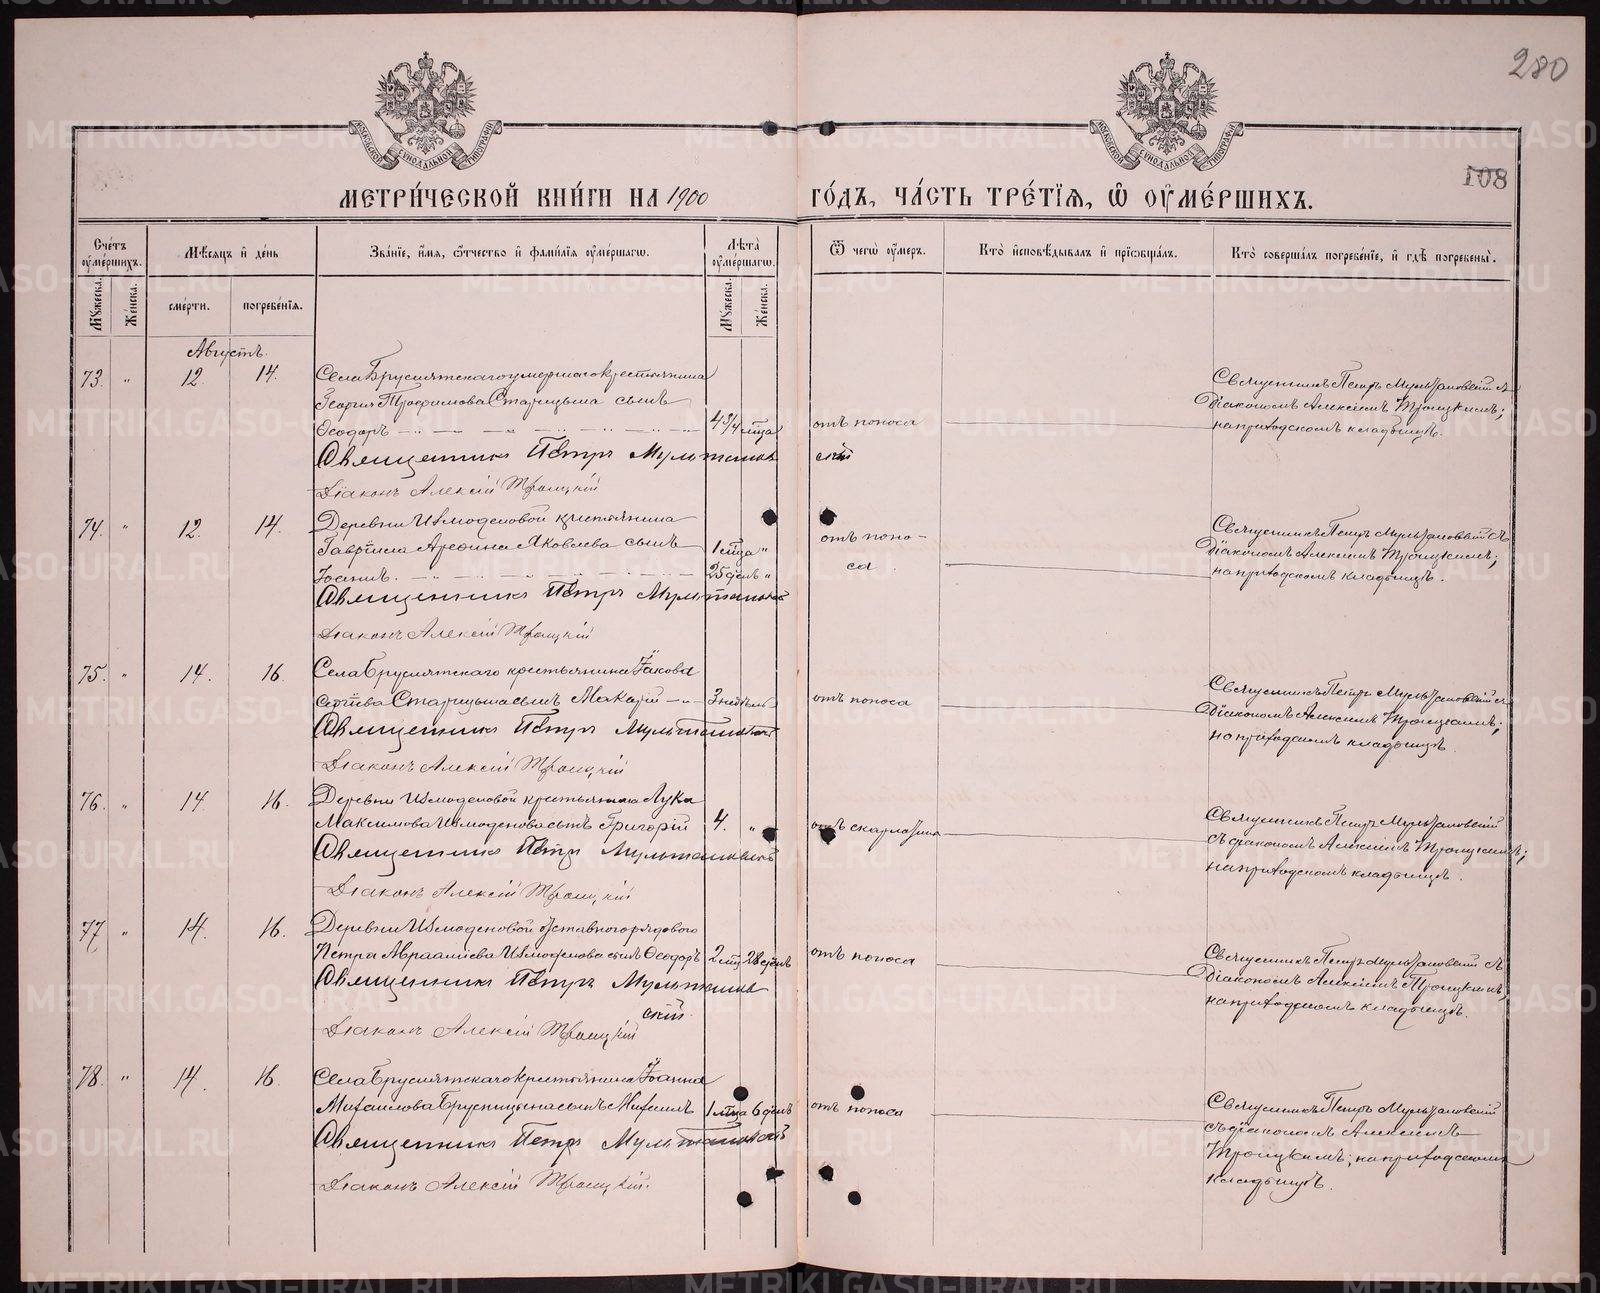 280
108
МОСКОВСКОЙ СѴНОДАЛЬНОЙ ТИПОГРАФІИ
МОСКОВСКОЙ СѴНОДАЛЬНОЙ ТИПОГРАФІИ
МЕТРИ́ЧЕСКОЙ КНИ́ГИ НА 1900 ГО́ДЪ, ЧА́СТЬ ТРЕ́ТІѦ, Ѡ҆ ОУ҆МЕ́РШИХЪ.
Сче́тъ оу҆ме́ршихъ.
Мꙋ́жеска.
Же́нска.
Мѣ́сяцъ и҆ де́нь
сме́рти.
погребе́нїѧ.
Зва́нїе, и҆́мѧ, ѻ҆́тчество и҆ фами́лїѧ оу҆ме́ршагѡ.
Лѣ́та оу҆ме́ршагѡ.
Мꙋ́жеска.
Же́нска.
Ѿ чегѡ̀ оу҆́меръ.
Кто̀ и҆сповѣ́дывалъ и҆ прїѡбща́лъ.
Кто̀ соверша́лъ погребе́нїе, и҆ гдѣ̀ погребены̀.
Августъ.
73. " 12. 14. Села Бруснятскаго умершаго крестьянина
Георгія Трофимова Старицына сынъ
Ѳеодоръ 4¾ мца отъ поноса
Священникъ Петръ Мультановскій
Діаконъ Алексій Троицкій
Священникъ Петръ Мультановскій съ
Діакономъ Алексіемъ Троицкимъ;
на приходскомъ кладбищѣ.
74. " 12. 14. Деревни Измоденовой крестьянина
Гавріила Арефина Яковлева сынъ
Іоаннъ. 1 мца " 25 день " отъ поноса
Священникъ Петръ Мультановскій
Діаконъ Алексій Троицкій
Священникъ Петръ Мультановскій съ
Діакономъ Алексіемъ Троицкимъ;
на приходскомъ кладбищѣ.
75. " 14. 16. Села Бруснятскаго крестьянина Іакова
Сергіева Старицына сынъ Макарій 3 недѣль отъ поноса
Священникъ Петръ Мультановскій
Діаконъ Алексій Троицкій
Священникъ Петръ Мультановскій съ
Діакономъ Алексіемъ Троицкимъ;
на приходскомъ кладбищѣ.
76. " 14 16. Деревни Измоденовой крестьянина Лука
Максимова Измоденова сынъ Григорій 4. " отъ скарлатина
Священникъ Петръ Мультановскій
Діаконъ Алексій Троицкій
Священникъ Петръ Мультановскій
съ діакономъ Алексіемъ Троицкимъ;
на приходскомъ кладбищѣ.
77 " 14. 16. Деревни Измоденовой отставного рядового
Петра Авраамiева Измоденова сынъ Ѳеодоръ 2 мца 28 день отъ поноса
Священникъ Петръ Мультановскій
Діаконъ Алексій Троицкій
Священникъ Петръ Мультановскій съ
Діакономъ Алексіемъ Троицкимъ;
на приходскомъ кладбищѣ.
78. " 14. 16. Села Бруснятскаго крестьянина Іоанна
Михаилова Брусницына сынъ Михаилъ 1 мца 6 день отъ поноса
Священникъ Петръ Мультановскій
Діаконъ Алексій Троицкій.
Священникъ Петръ Мультановскій
съ діакономъ Алексіемъ
Троицкимъ; на приходскомъ
кладбищѣ.
METRIKI.GASO-URAL.RU